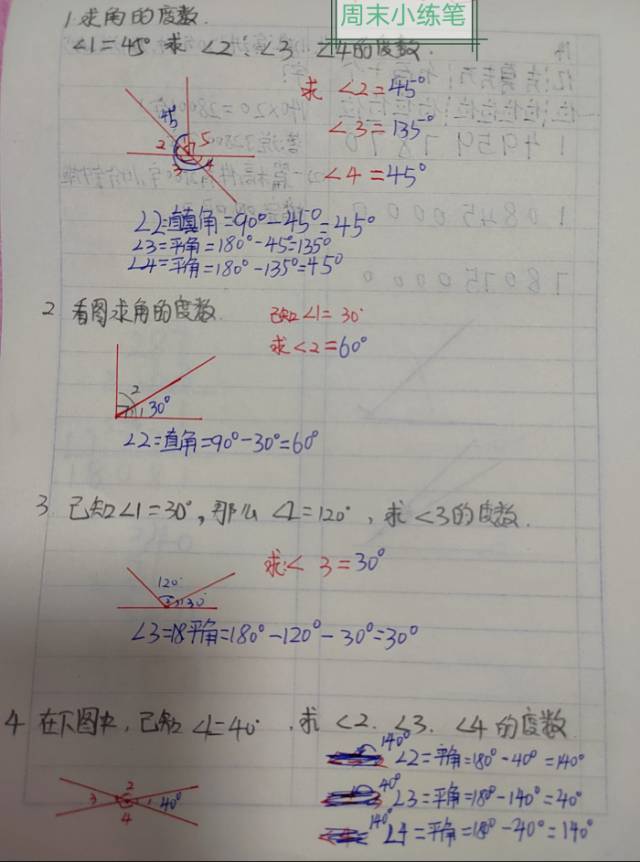 周末小练笔
1.求角的度数.
∠1=45° 求 ∠2、∠3 ∠4的度数.
求 ∠2=45°
∠3=135°
∠4=45°
45
2 1 5
3 4
∠2=直角=90°-45°=45°
∠3=平角=180°-45=135°
∠4=平角=180°-135°=45°
2 看图求角的度数.
已知∠1=30°
求∠2=60°
2
1 30°
∠2=直角=90°-30°=60°
3. 已知∠1=30°,那么∠2=120°,求∠3的度数.
求∠3=30°
120°
30°
∠3=18平角=180°-120°-30°=30°
4 在下图中,已知∠1=40°.求∠2.∠3.∠4的度数
140° ∠2=平角=180°-40°=140°
40° ∠3=平角=180°-140°=40°
140° ∠4=平角=180°-40°=140°
2
3 1 40°
4